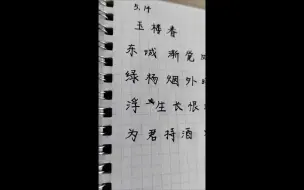 5.14
玉楼春
东城渐觉
绿杨烟外
浮生长恨
为君持酒